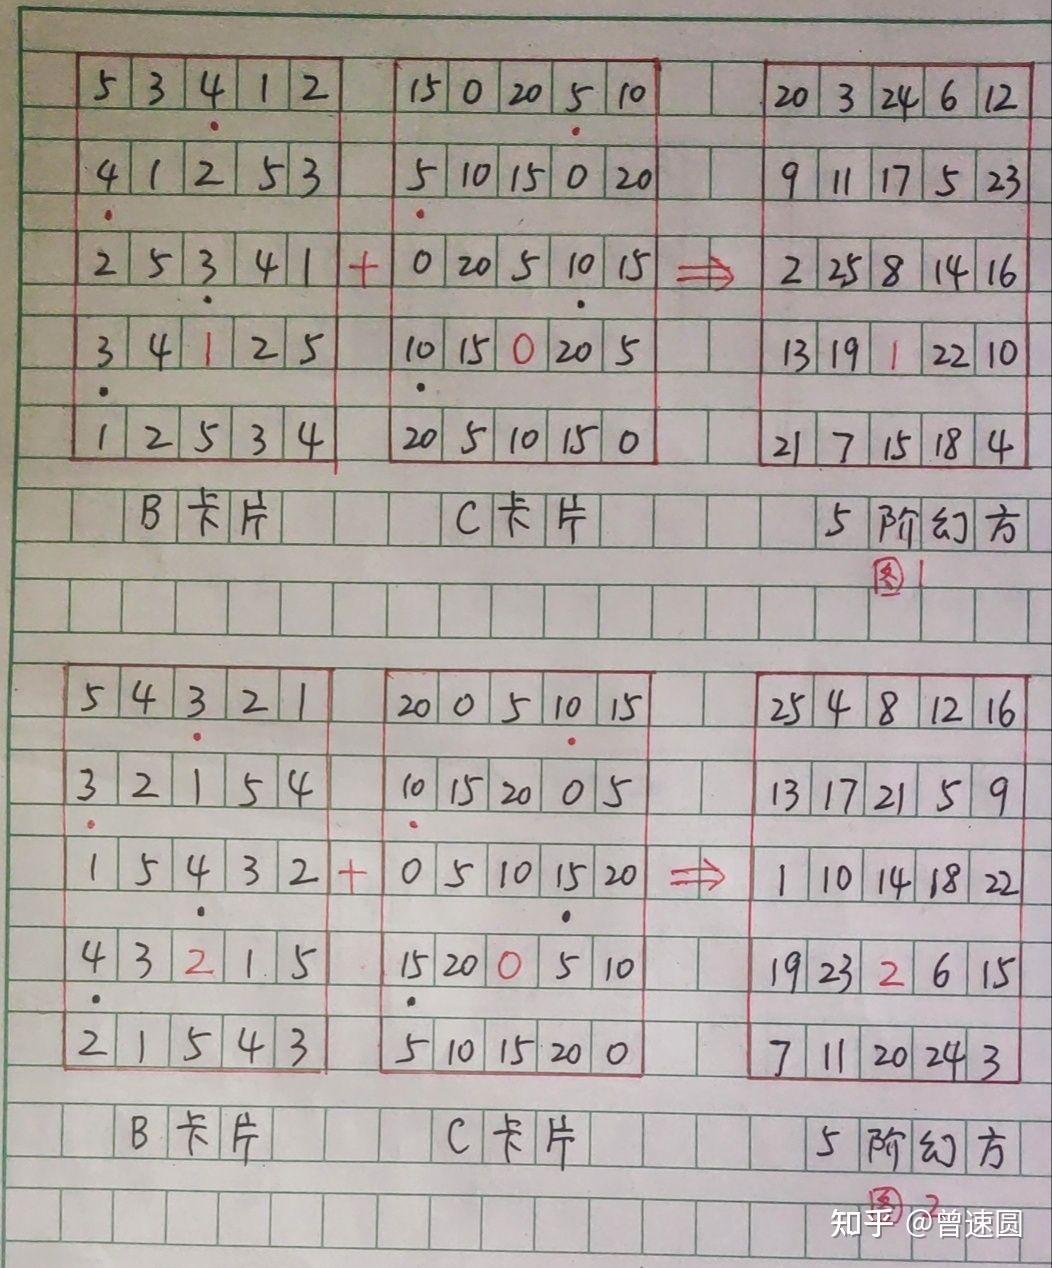 5 3 4 1 2 15 0 20 5 10 20 3 24 6 12
4 1 2 5 3 5 10 15 0 20 9 11 17 5 23
2 5 3 4 1 + 0 20 5 10 15 ⇒ 2 25 8 14 16
3 4 1 2 5 10 15 0 20 5 13 19 1 22 10
1 2 5 3 4 20 5 10 15 0 21 7 15 18 4
B卡片 C卡片 5阶幻方
图1
5 4 3 2 1 20 0 5 10 15 25 4 8 12 16
3 2 1 5 4 10 15 20 0 5 13 17 21 5 9
1 5 4 3 2 + 0 5 10 15 20 ⇒ 1 10 14 18 22
4 3 2 1 5 15 20 0 5 10 19 23 2 6 15
2 1 5 4 3 5 10 15 20 0 7 11 20 24 3
B卡片 C卡片 5阶幻方
图2
知乎 @曾速圆